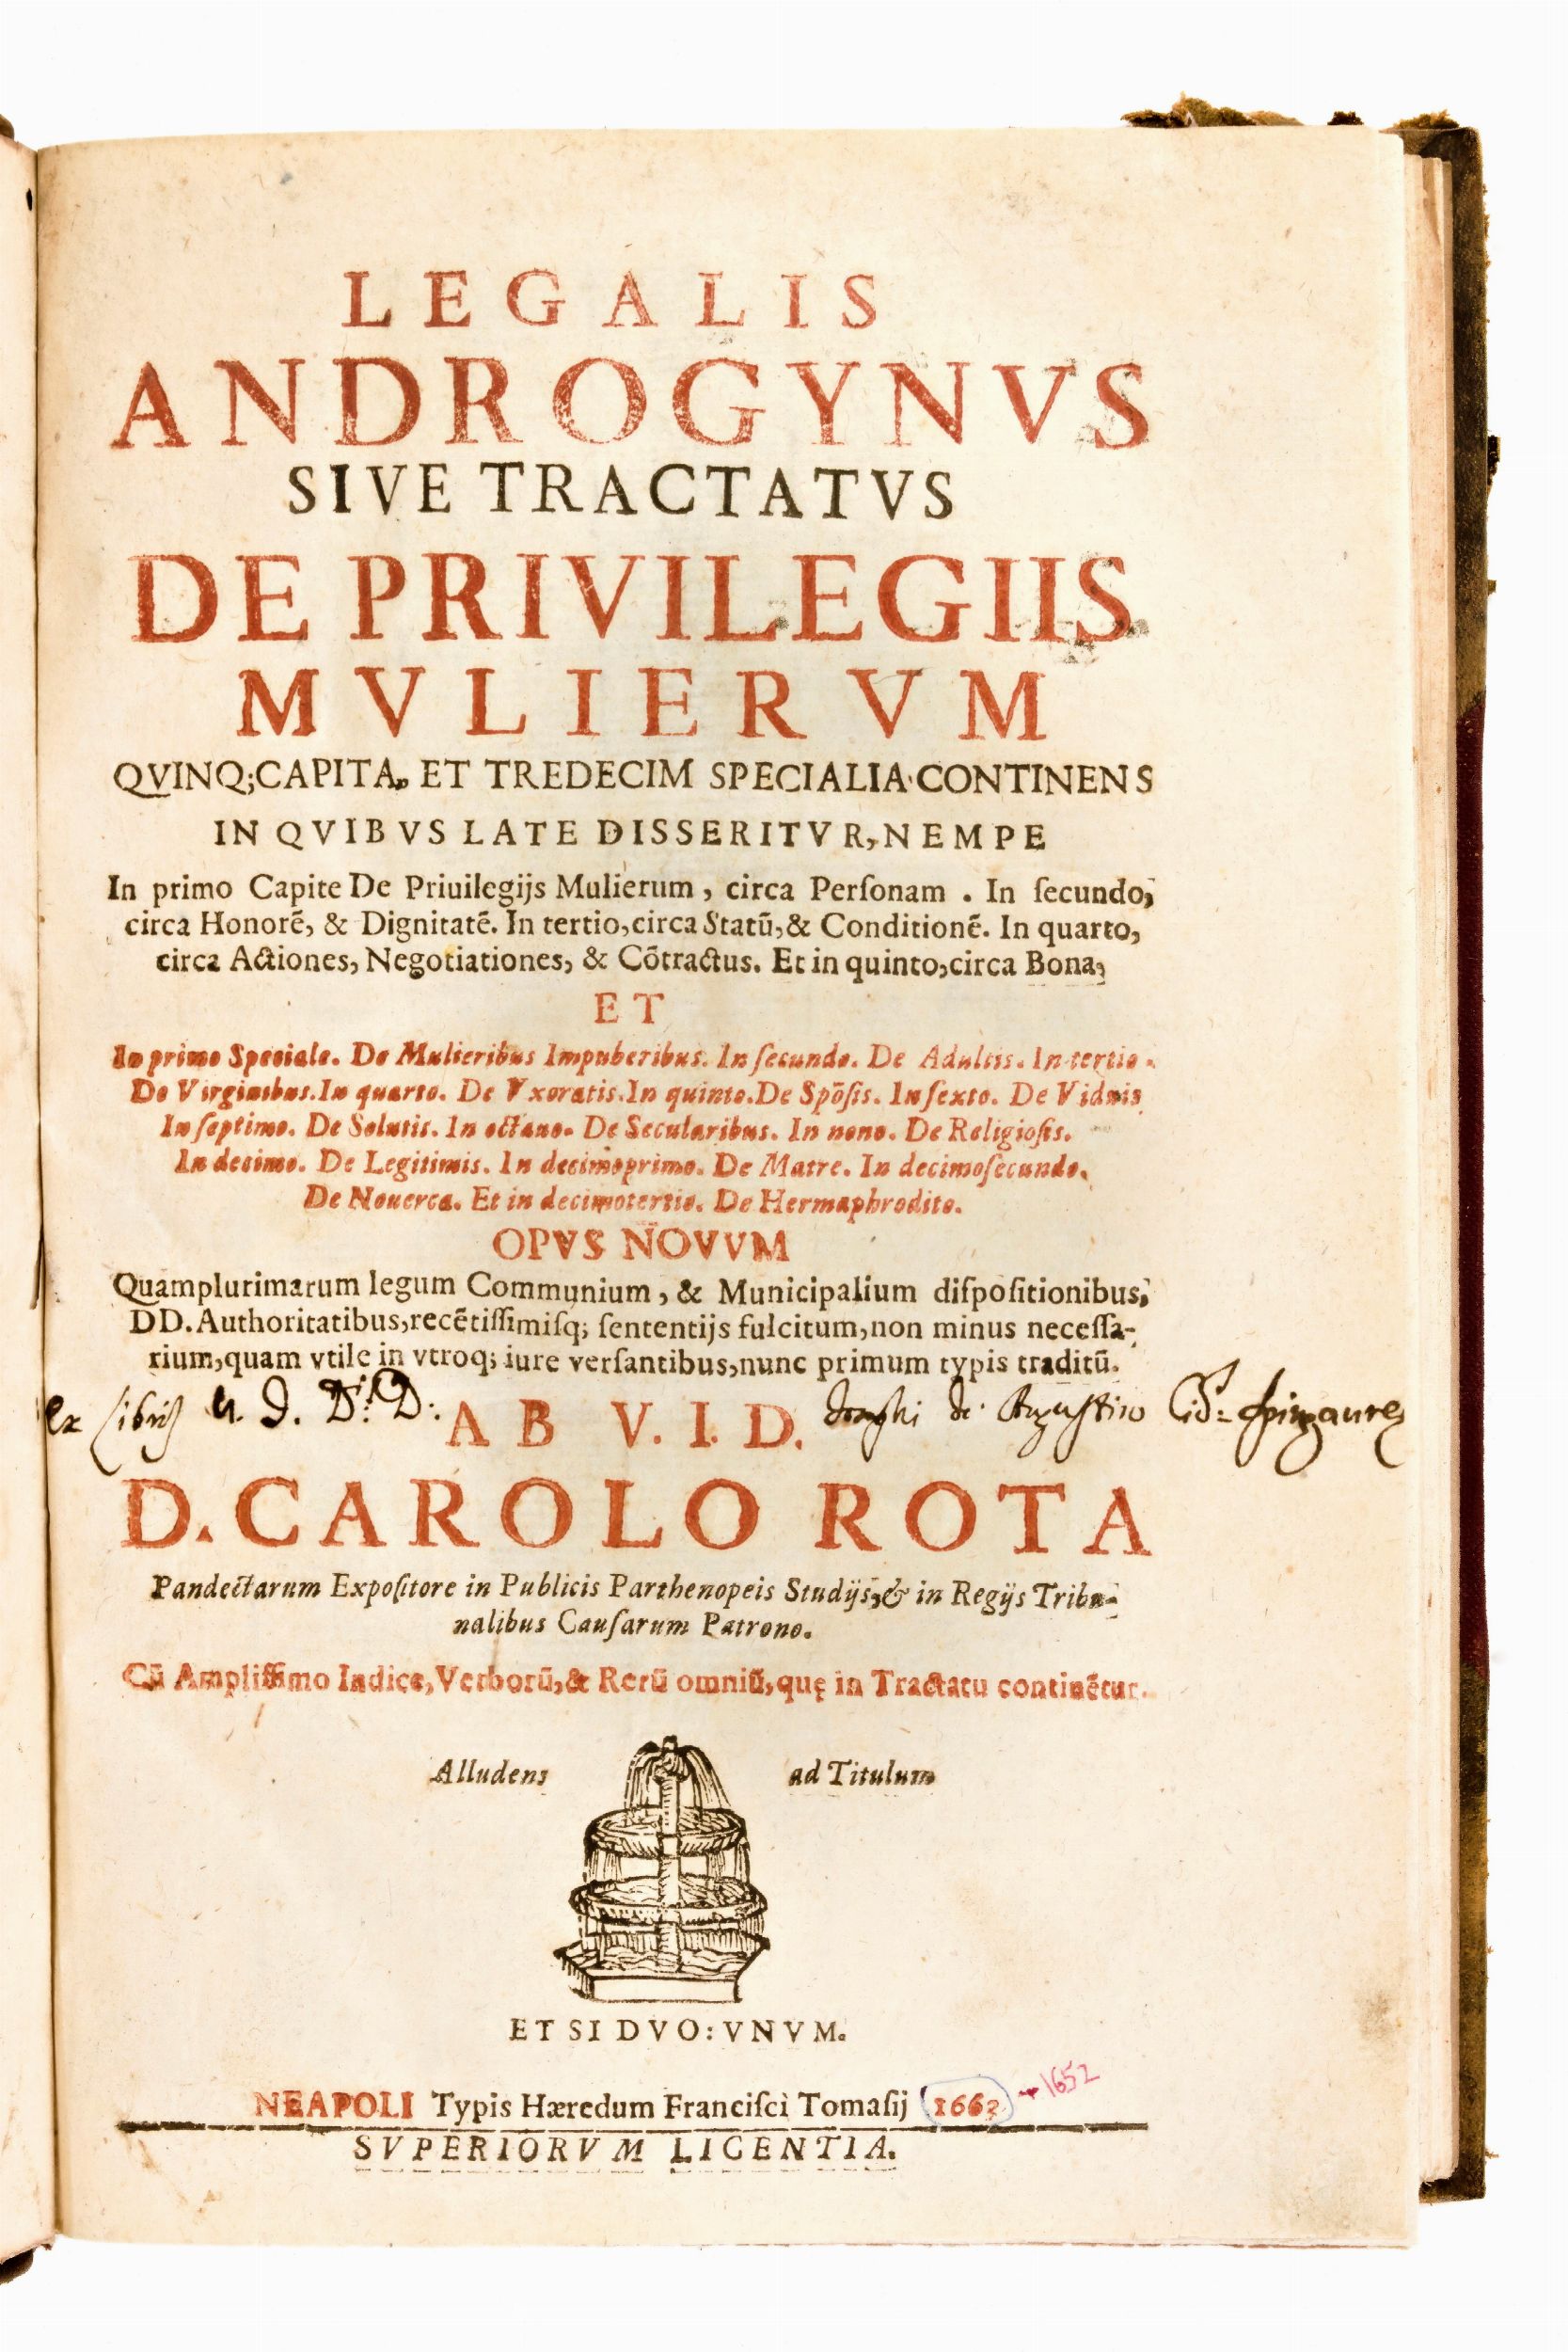 LEGALIS
ANDROGYNVS
SIVE TRACTATVS
DE PRIVILEGIIS
MVLIERVM
QVINQ;CAPITA, ET TREDECIM SPECIALIA CONTINENS
IN QVIBVS LATE DISSERITVR, NEMPE
In primo Capite De Priuilegijs Mulierum, circa Perſonam. In ſecundo,
circa Honorē, & Dignitatē. In tertio, circa Statū, & Conditionē. In quarto,
circa Actiones, Negotiationes, & Cōtractus. Et in quinto, circa Bona,
ET
In primo Speciale. De Mulieribus Impuberibus. In ſecundo. De Adultis. In tertio.
De Virginibus. In quarto. De Vxoratis. In quinto. De Spōſis. In ſexto. De Viduis
In ſeptimo. De Solutis. In octauo. De Secularibus. In nono. De Religioſis.
In decimo. De Legitimis. In decimoprimo. De Matre. In decimoſecundo.
De Nouerca. Et in decimotertio. De Hermaphrodito.
OPVS NOVVM
Quamplurimarum legum Communium, & Municipalium diſpoſitionibus,
DD. Authoritatibus, recētiſſimiſq; ſententijs fulcitum, non minus neceſſa-
rium, quam vtile in vtroq; iure verſantibus, nunc primum typis traditū.
ex libris U. J. D.ris D.
AB V. I. D.
de Augustino
D. CAROLO ROTA
Pandectarum Expoſitore in Publicis Parthenopeis Studijs, & in Regijs Tribu-
nalibus Cauſarum Patrono.
Cū Ampliſſimo Indice, Verborū, & Rerū omniū, quę in Tractatu continētur.
Alludens ad Titulum
ET SI DVO: VNVM.
NEAPOLI Typis Hæredum Franciſci Tomaſij 1662 1652
SVPERIORVM LICENTIA.